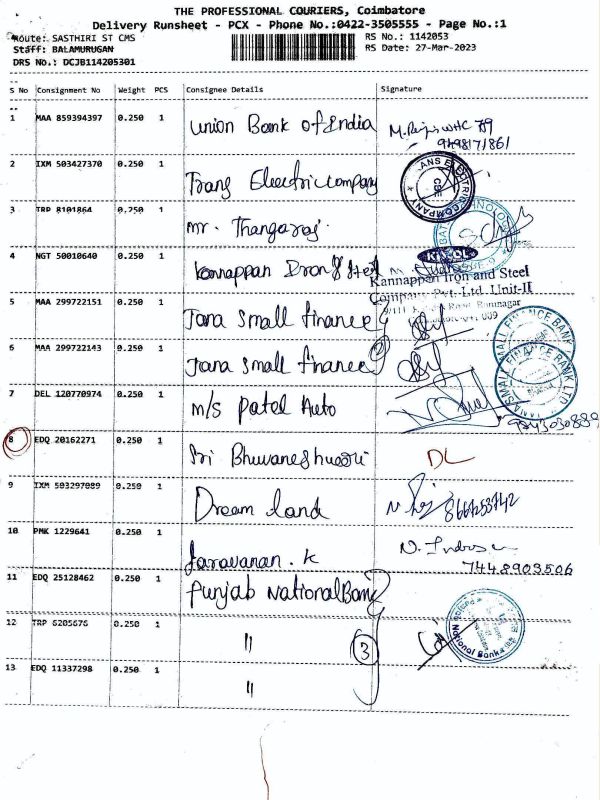 THE PROFESSIONAL COURIERS, Coimbatore
Delivery Runsheet - PCX - Phone No.:0422-3505555 - Page No.:1
Route: SASTHIRI ST CMS
RS No.: 1142053
Staff: BALAMURUGAN
RS Date: 27-Mar-2023
DRS No.: DCJB114205301
S No Consignment No Weight PCS Consignee Details Signature
1 MAA 859394397 0.250 1 Union Bank of India
2 IXM 503427370 0.250 1 Trans Electric company
3 TRP 8101864 0.250 1 mr. Thangaraj.
4 NGT 50010640 0.250 1 Kannappan Iron & Steel
Kannappan Iron and Steel
Company Pvt. Ltd. Unit-II
5 MAA 299722151 0.250 1 Jana small finance
6 MAA 299722143 0.250 1 Jana small finance 2
JANA SMALL FINANCE BANK LTD
7 DEL 120770974 0.250 1 m/s Patel Auto
8 EDQ 20162271 0.250 1 Sri Bhuvaneshwari DL
9 IXM 503297089 0.250 1 Dream land
10 PMK 1229641 0.250 1 Saravanan . K
7448903506
11 EDQ 25128462 0.250 1 Punjab National Bank
12 TRP 6205676 0.250 1 "
3
13 EDQ 11337298 0.250 1 "